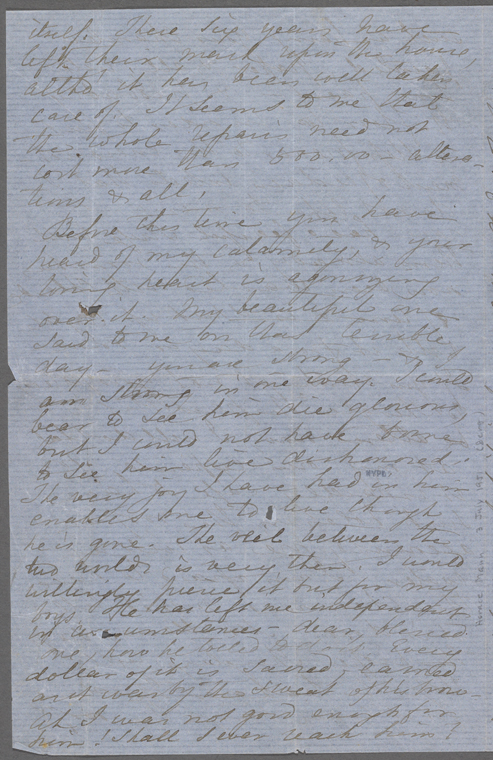 itself. These six years have
left their mark upon the house,
altho' it has been well taken
care of. It seems to me that
the whole repairs need not
cost more than 500.00 - altera-
tions & all.
Before this time you have
heard of my calamity, & your
loving heart is agonizing
over it. My beautiful one
said to me on that terrible
day - you are strong - & I
am strong in one way. I could
bear to see him die glorious,
but I could not have borne
to see him live dishonored.
The very joy I have had in him
enables me to live though
he is gone. The veil between the
two worlds is very thin. I would
willingly pierce it but for my
boys. He has left me independent
in circumstances - dear, blessed
one, how he toiled to do it. Every
dollar of it is sacred, earned
as it was by the sweat of his brow -
Ah I was not good enough for
him! Shall I ever reach him!
NYPL
Horace Mann